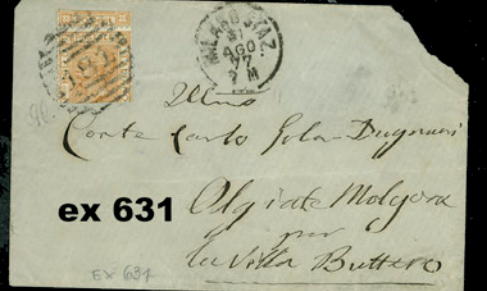 MILANO STAZ.
31
AGO
77
2 M
Illmo
Conte Carlo Sola-Bugnani
ex 631 Olgiate Molgora
per
la Villa Buttero
EX 631